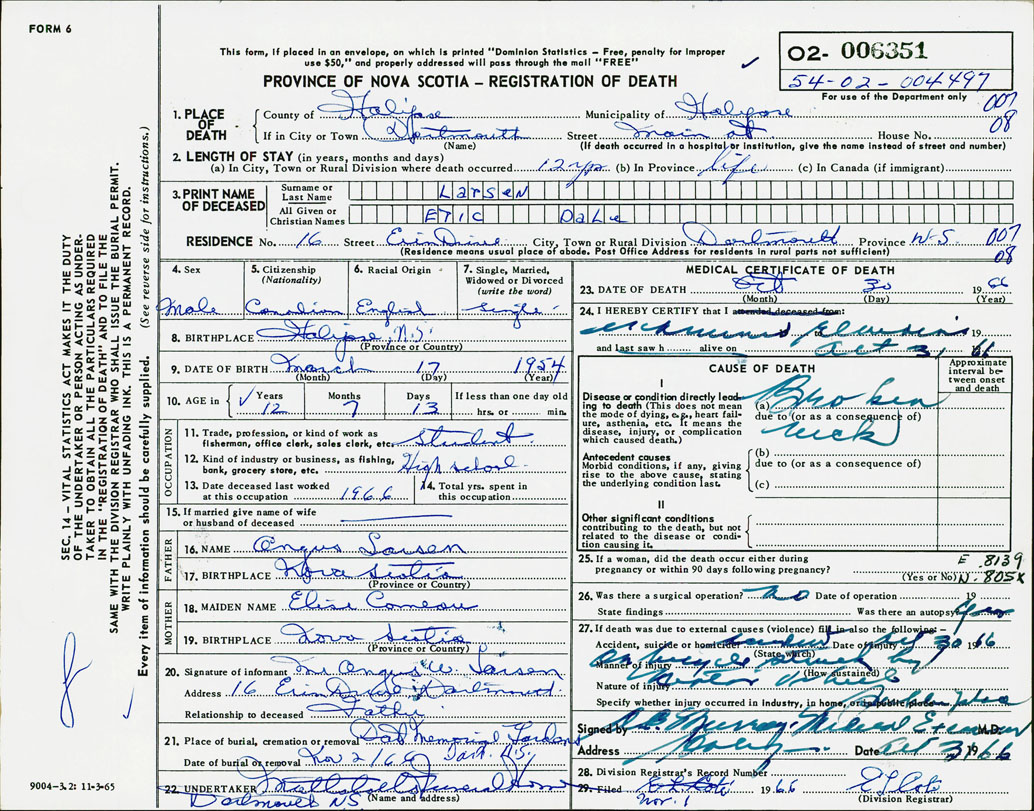 FORM 6
This form, if placed in an envelope, on which is printed "Dominion Statistics – Free, penalty for improper
use $50," and properly addressed will pass through the mail "FREE"
PROVINCE OF NOVA SCOTIA – REGISTRATION OF DEATH
O2- 006351
54-02-004497
For use of the Department only
007
08
1. PLACE OF DEATH
County of Halifax Municipality of Halifax
If in City or Town Dartmouth Street Main St House No.
(Name) (If death occurred in a hospital or institution, give the name instead of street and number)
2. LENGTH OF STAY (in years, months and days)
(a) In City, Town or Rural Division where death occurred 12 yrs (b) In Province life (c) In Canada (if immigrant)
3. PRINT NAME OF DECEASED
Surname or Last Name Larsen
All Given or Christian Names Eric Dale
RESIDENCE No. 16 Street Erin Drive City, Town or Rural Division Dartmouth Province N.S. 007
(Residence means usual place of abode. Post Office Address for residents in rural parts not sufficient) 08
4. Sex Male
5. Citizenship (Nationality) Canadian
6. Racial Origin English
7. Single, Married, Widowed or Divorced (write the word) Single
8. BIRTHPLACE Halifax, N.S.
(Province or Country)
9. DATE OF BIRTH March 17 1954
(Month) (Day) (Year)
10. AGE in Years 12 Months 7 Days 13 If less than one day old hrs. or min.
OCCUPATION
11. Trade, profession, or kind of work as
fisherman, office clerk, sales clerk, etc. Student
12. Kind of industry or business, as fishing,
bank, grocery store, etc. High school
13. Date deceased last worked
at this occupation 1966
14. Total yrs. spent in
this occupation
15. If married give name of wife
or husband of deceased
FATHER
16. NAME Angus Larsen
17. BIRTHPLACE Nova Scotia
(Province or Country)
MOTHER
18. MAIDEN NAME Elise Comeau
19. BIRTHPLACE Nova Scotia
(Province or Country)
20. Signature of informant Angus W. Larsen
Address 16 Erin Drive Dartmouth
Relationship to deceased Father
21. Place of burial, cremation or removal Dart Memorial Gardens
Date of burial or removal Nov 2/66 Dart. N.S.
22. UNDERTAKER Funeral Home
Dartmouth NS (Name and address)
MEDICAL CERTIFICATE OF DEATH
23. DATE OF DEATH Oct 30 1966
(Month) (Day) (Year)
24. I HEREBY CERTIFY that I attended deceased from:
to 19
and last saw h alive on Oct 31 1966
CAUSE OF DEATH
Approximate interval between onset and death
I
Disease or condition directly leading to death (This does not mean the mode of dying, e.g., heart failure, asthenia, etc. It means the disease, injury, or complication which caused death.)
(a) Broken
due to (or as a consequence of)
neck
Antecedent causes
Morbid conditions, if any, giving rise to the above cause, stating the underlying condition last.
(b)
due to (or as a consequence of)
(c)
II
Other significant conditions
contributing to the death, but not related to the disease or condition causing it.
25. If a woman, did the death occur either during
pregnancy or within 90 days following pregnancy?
(Yes or No)
E 8139
N. 805X
26. Was there a surgical operation? no Date of operation 19
State findings Was there an autopsy? yes
27. If death was due to external causes (violence) fill in also the following:–
Accident, suicide or homicide accident Date of injury Oct 30 1966
(State which)
Manner of injury on bicycle struck by
(How sustained)
Nature of injury motor vehicle
Specify whether injury occurred in Industry, in home, or in public place Public place
Signed by Murray Medical Examiner M.D.
Address
Date Oct 31 1966
28. Division Registrar's Record Number
29. Filed Nov. 1 1966
(Division Registrar)
SEC. 14 – VITAL STATISTICS ACT MAKES IT THE DUTY
OF THE UNDERTAKER OR PERSON ACTING AS UNDER-
TAKER TO OBTAIN ALL THE PARTICULARS REQUIRED
IN THE "REGISTRATION OF DEATH" AND TO FILE THE
SAME WITH THE DIVISION REGISTRAR WHO SHALL ISSUE THE BURIAL PERMIT.
WRITE PLAINLY WITH UNFADING INK. THIS IS A PERMANENT RECORD.
Every item of information should be carefully supplied. (See reverse side for instructions.)
9004-3.2: 11-3-65